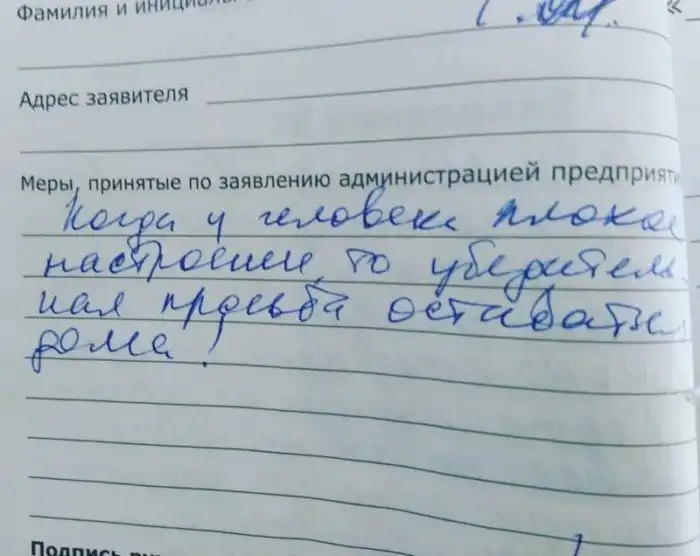 Фамилия и инициалы
Адрес заявителя
Меры, принятые по заявлению администрацией предприяти
Когда у человека плохое
настроение, то убедитель
ная просьба оставаться
дома!
Подпись